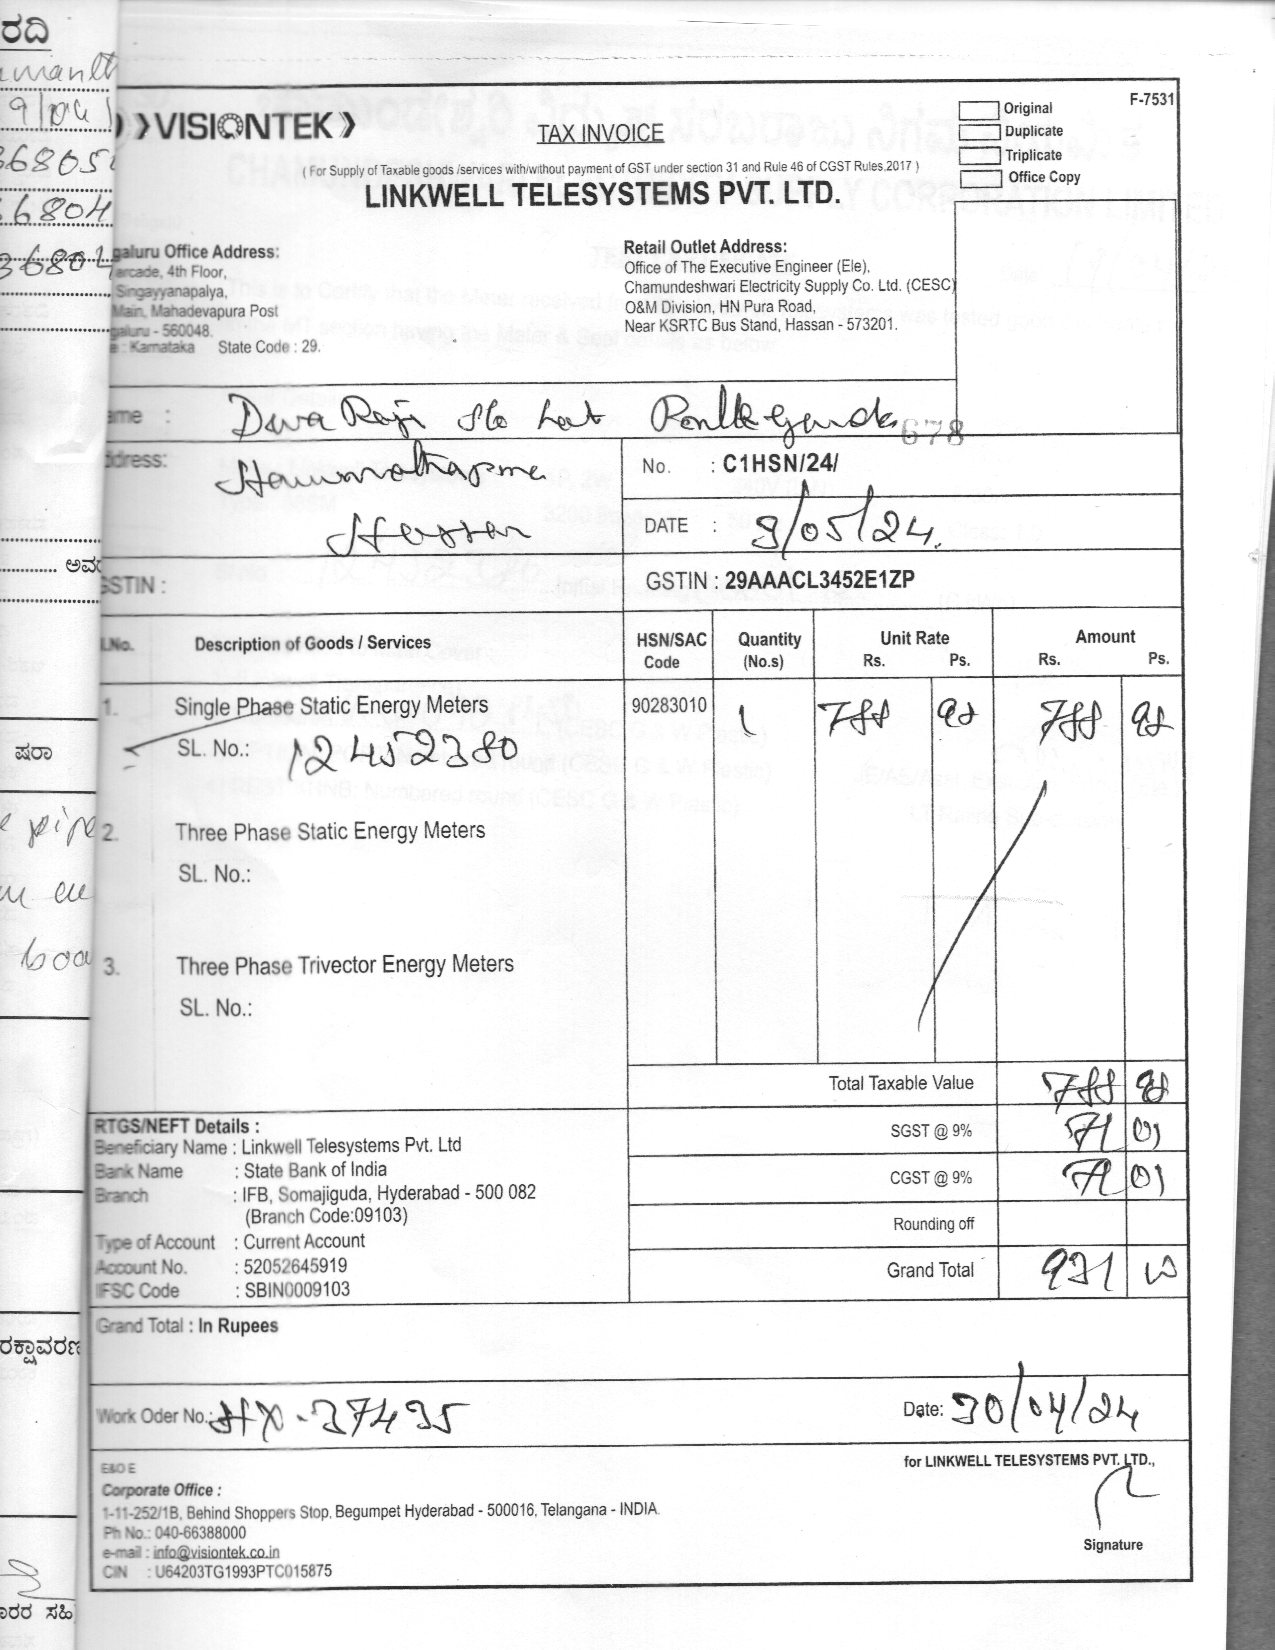 ರದಿ
F-7531
Original
Duplicate
Triplicate
Office Copy
VISIONTEK
TAX INVOICE
( For Supply of Taxable goods /services with/without payment of GST under section 31 and Rule 46 of CGST Rules.2017 )
LINKWELL TELESYSTEMS PVT. LTD.
galuru Office Address:
arcade, 4th Floor,
Singayyanapalya,
Main, Mahadevapura Post
galuru - 560048.
e : Karnataka State Code : 29.
Retail Outlet Address:
Office of The Executive Engineer (Ele),
Chamundeshwari Electricity Supply Co. Ltd. (CESC)
O&M Division, HN Pura Road,
Near KSRTC Bus Stand, Hassan - 573201.
ame :
678
ddress:
Hassan
No. : C1HSN/24/
DATE : 9/05/24.
GSTIN :
GSTIN : 29AAACL3452E1ZP
l.No. Description of Goods / Services HSN/SAC Code Quantity (No.s) Unit Rate Rs. Ps. Amount Rs. Ps.
1. Single Phase Static Energy Meters 90283010 1 788 98 788 98
SL. No.: 12452380
2. Three Phase Static Energy Meters
SL. No.:
3. Three Phase Trivector Energy Meters
SL. No.:
Total Taxable Value 788 98
SGST @ 9% 71 01
CGST @ 9% 71 01
Rounding off
Grand Total 931 00
RTGS/NEFT Details :
Beneficiary Name : Linkwell Telesystems Pvt. Ltd
Bank Name : State Bank of India
Branch : IFB, Somajiguda, Hyderabad - 500 082
(Branch Code:09103)
Type of Account : Current Account
Account No. : 52052645919
IFSC Code : SBIN0009103
Grand Total : In Rupees
Work Oder No.: HX-27435 Date: 30/04/24
E&O E
for LINKWELL TELESYSTEMS PVT. LTD.,
Corporate Office :
1-11-252/1B, Behind Shoppers Stop, Begumpet Hyderabad - 500016, Telangana - INDIA.
Ph No.: 040-66388000
e-mail : info@visiontek.co.in
CIN : U64203TG1993PTC015875
Signature
ಷರಾ